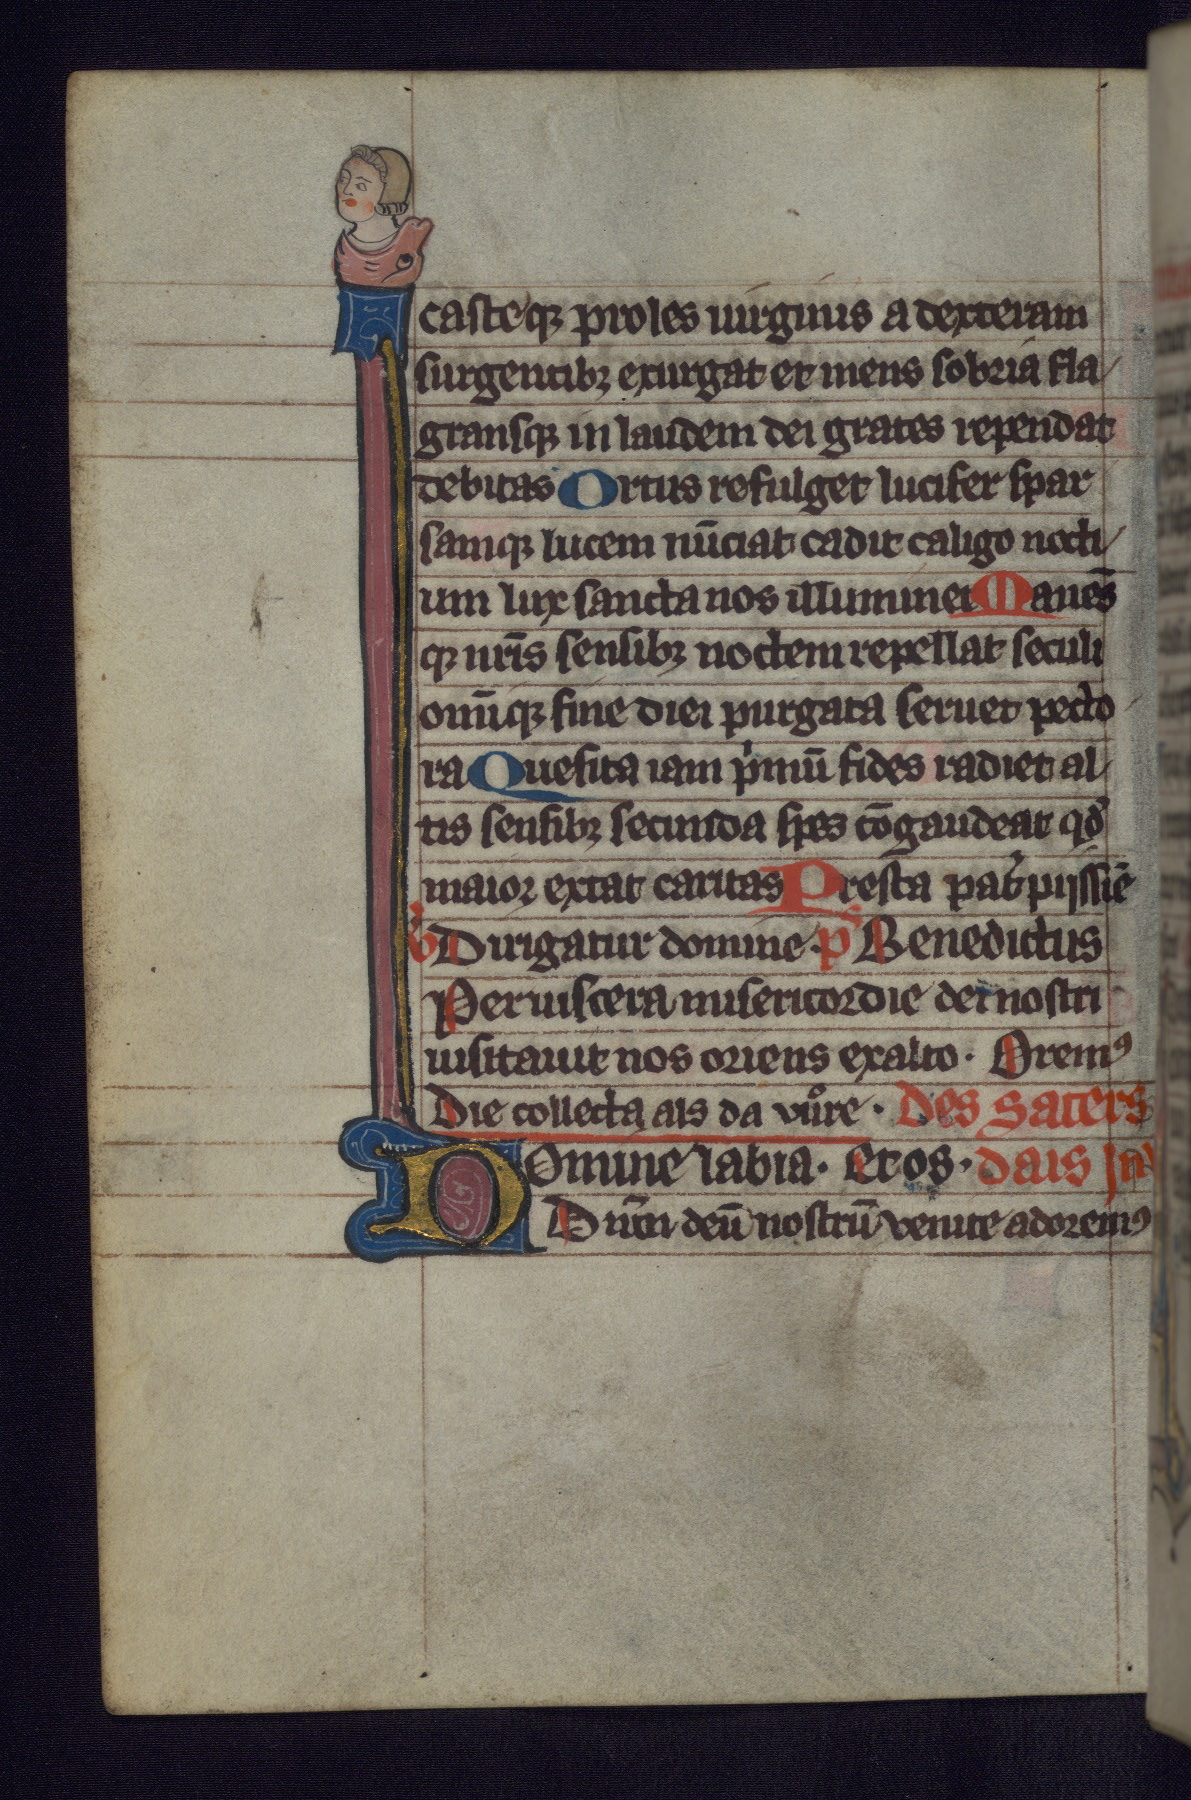 casteqꝫ proles uirginis a dexteram
surgentibꝫ exurgat et mens sobria fla
gransqꝫ in laudem dei grates rependat
debitas Ortus refulget lucifer spar
samqꝫ lucem nūciat cadit caligo nocti
um lux sancta nos illuminet Manēs
qꝫ nr̄is sensibꝫ noctem repellat seculi
omīqꝫ fine diei purgata seruet pecto
ra Quesita iam pⁱmū fides radiet al
tis sensibꝫ secunda spes cōgaudeat qͦ
maior extat caritas Presta pat̾ pijssiē
Dirigatur domine. Benedictus
Per uiscera misericordie dei nostri
uisitauit nos oriens ex alto. Oremꝰ
Die collecta als da vůre. Des saters
Domine labia. Et os. dais Jn̄
Dnm̄ deū nostrū venite adoremꝰ